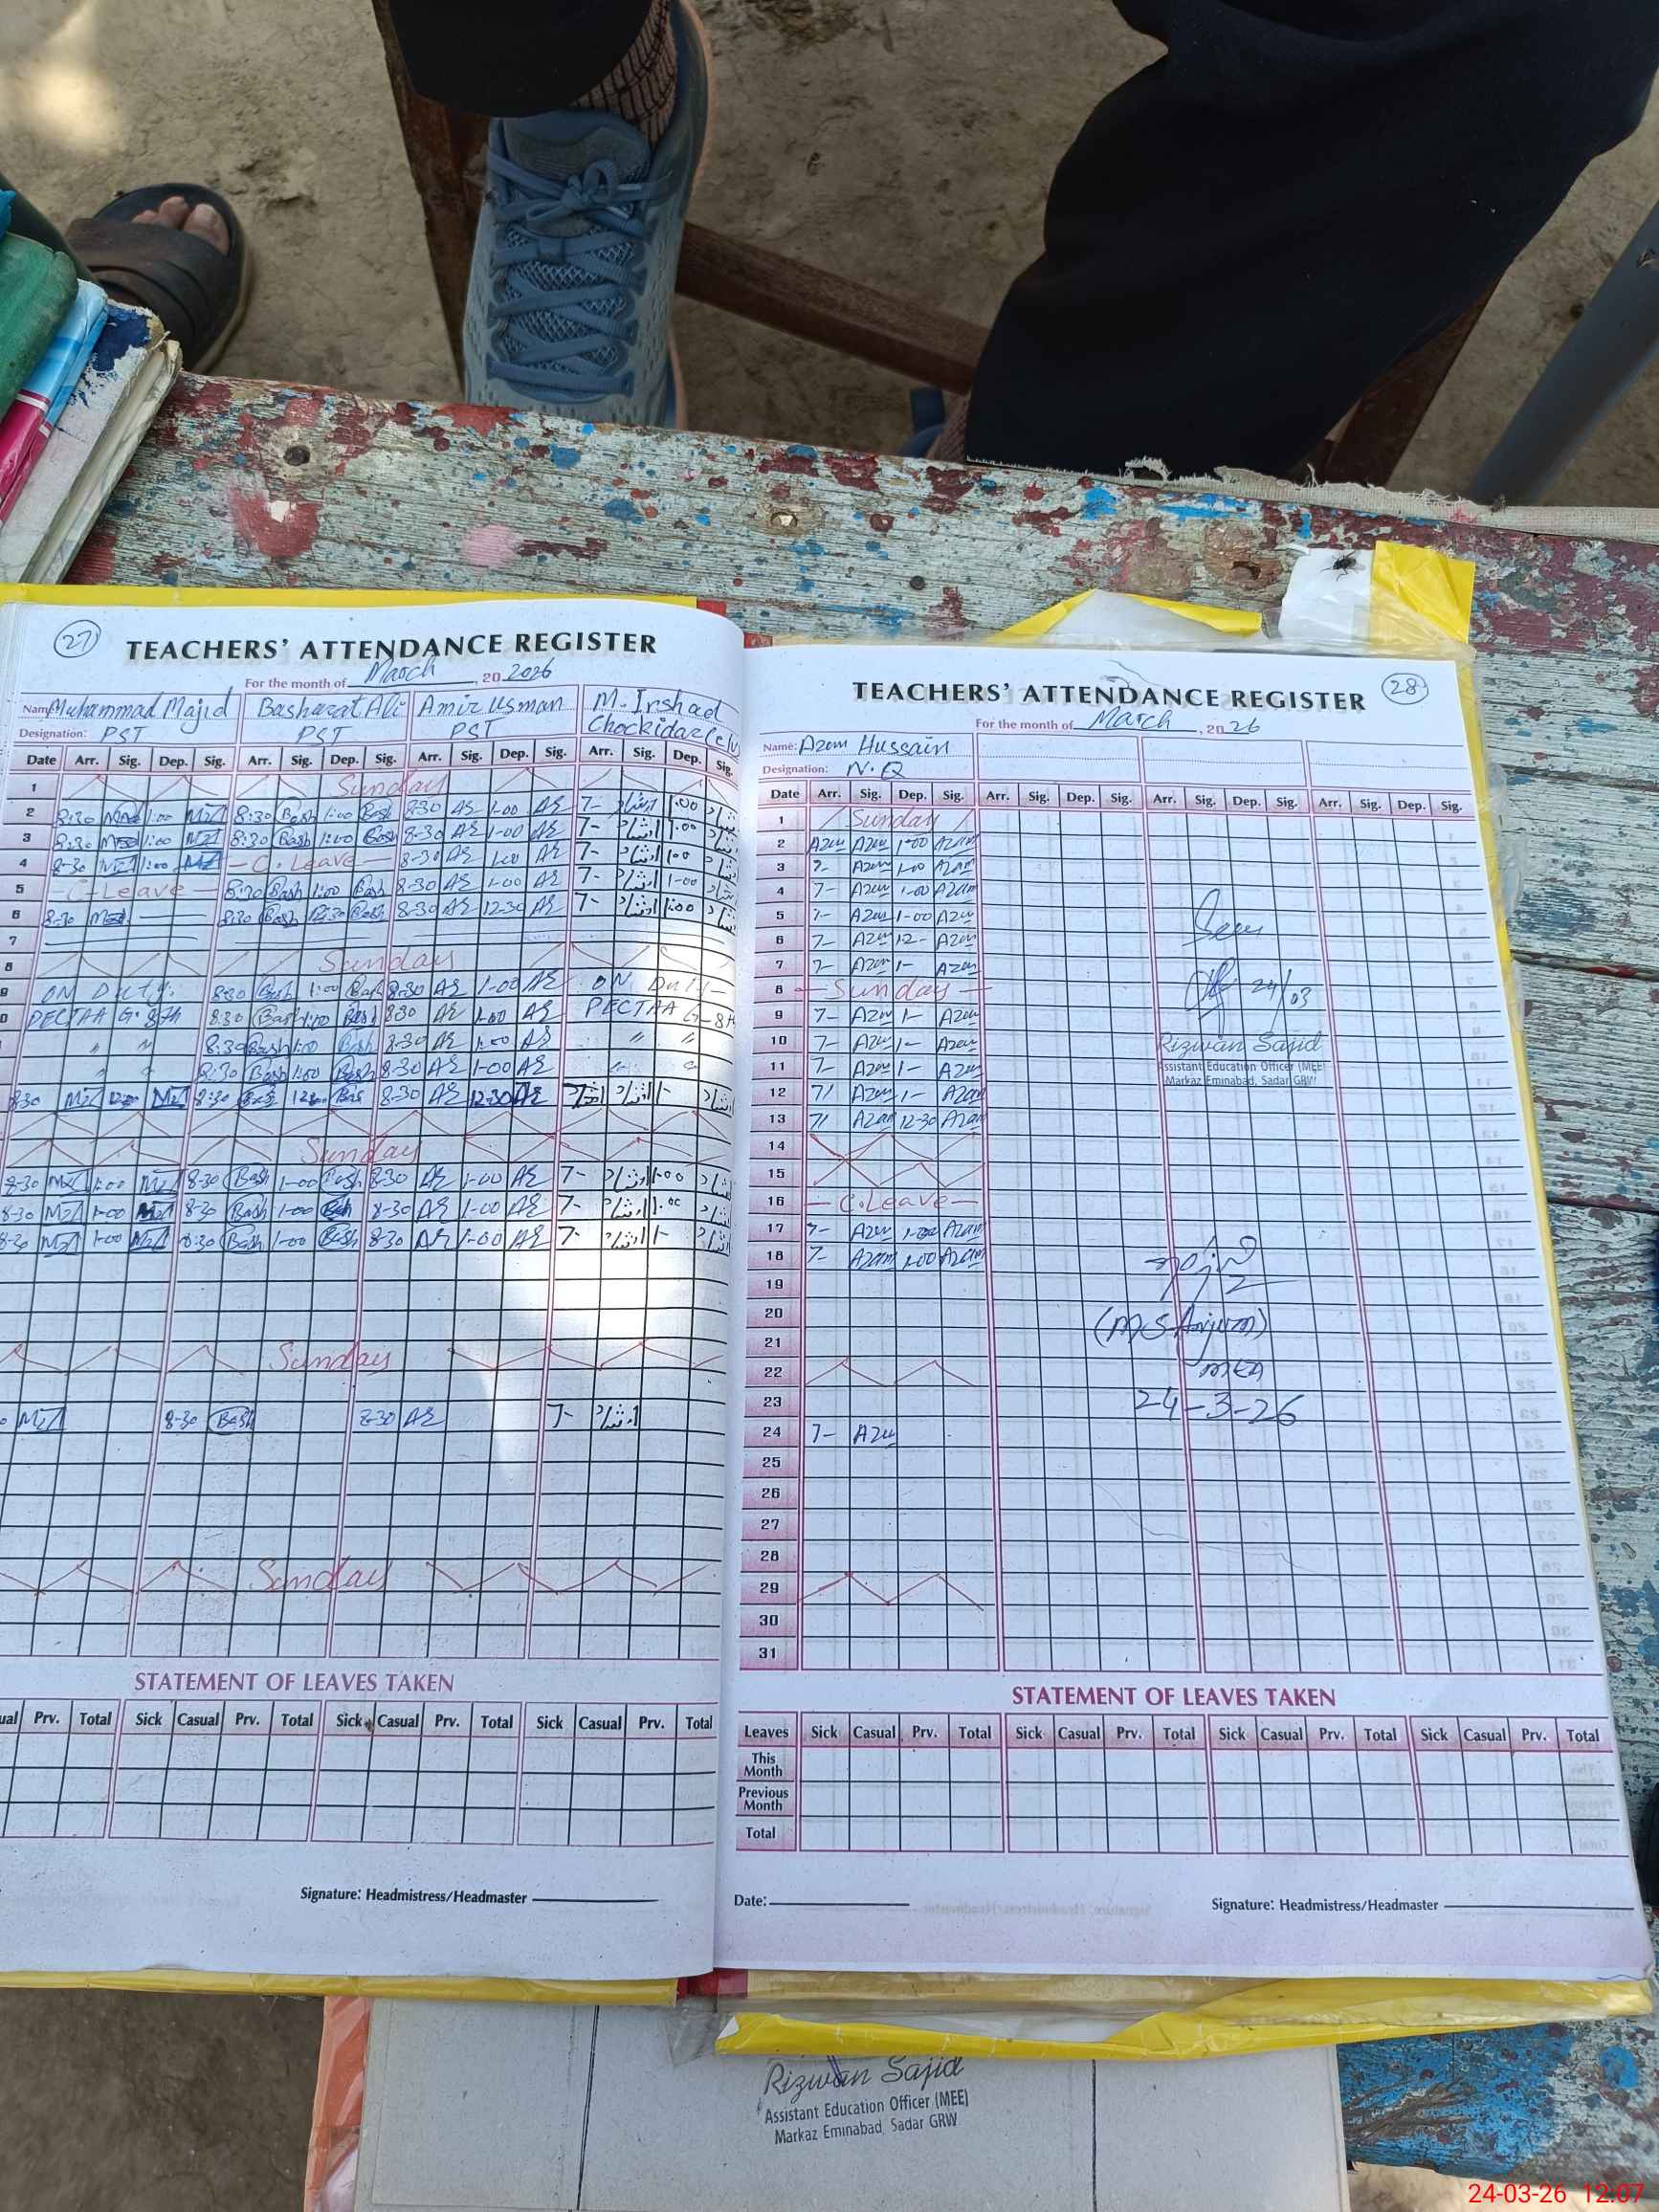 27
TEACHERS' ATTENDANCE REGISTER
For the month of March, 20 2026
Name Muhammad Majid Basharat Ali Amir Usman M. Irshad
Designation: PST PST PST Chockidar
Date Arr. Sig. Dep. Sig. Arr. Sig. Dep. Sig. Arr. Sig. Dep. Sig. Arr. Sig. Dep. Sig.
1 Sunday
2 8:30 1:00 8:30 Bash 1:00 Bash 8-30 AE 1-00 AE 7- ارشاد 1:00
3 8:30 1:00 8:30 Bash 1:00 Bash 8-30 AE 1-00 AE 7- ارشاد 1:00
4 8-30 1:00 C. Leave 8-30 AE 1-00 AE 7- ارشاد 1:00
5 C-Leave 8:30 Bash 1:00 Bash 8-30 AE 1-00 AE 7- ارشاد 1-00
6 8-30 8:30 Bash 12:30 Bash 8-30 AE 12-30 AE 7- ارشاد 1:00
7
8 Sunday
ON Duty 8:30 Bash 1:00 Bash 8-30 AE 1-00 AE ON
PECTAA G-8th 8:30 Bash 1:00 Bash 8:30 AE 1-00 AE PECTAA G-8th
" " 8:30 Bash 1:00 Bash 8-30 AE 1:00 AE " "
8:30 Bash 1:00 Bash 8-30 AE 1-00 AE
8:30 8:30 8-30 AE 12-30 AE ارشاد ارشاد 1-
Sunday
8-30 1:00 8-30 Bash 1-00 Bash 8-30 AE 1-00 AE 7- ارشاد 1-00
8-30 1-00 8-30 Bash 1-00 8-30 AE 1-00 AE 7- ارشاد 1:00
8-30 1-00 8:30 Bash 1-00 Bash 8-30 AE 1-00 AE 7- ارشاد 1-
Sunday
8-30 Bash 8-30 AE 7- ارشاد
Sunday
STATEMENT OF LEAVES TAKEN
Prv. Total Sick Casual Prv. Total Sick Casual Prv. Total Sick Casual Prv. Total
Signature: Headmistress/Headmaster
28
TEACHERS' ATTENDANCE REGISTER
For the month of March, 20 26
Name: Azam Hussain
Designation: N.Q
Date Arr. Sig. Dep. Sig. Arr. Sig. Dep. Sig. Arr. Sig. Dep. Sig. Arr. Sig. Dep. Sig.
1 Sunday
2 Azam Azam 1-00 Azam
3 7- Azam 1-00 Azam
4 7- Azam 1-00 Azam
5 7- Azam 1-00 Azam
6 7- Azam 12- Azam
7 7- Azam 1- Azam
8 Sunday
24/03
9 7- Azam 1- Azam
10 7- Azam 1- Azam
Rizwan Sajid
11 7- Azam 1- Azam
Assistant Education Officer (MEE)
Markaz Eminabad, Sadar GRW
12 7/ Azam 1- Azam
13 7/ Azam 12-30 Azam
14
15
16 C. Leave
17 7- Azam 1-00 Azam
18 7- Azam 1-00 Azam
19
20
(M S Anjum)
21
22
MEA
23
24-3-26
24 7- Azam
25
26
27
28
29
30
31
STATEMENT OF LEAVES TAKEN
Leaves Sick Casual Prv. Total Sick Casual Prv. Total Sick Casual Prv. Total Sick Casual Prv. Total
This Month
Previous Month
Total
Date:
Signature: Headmistress/Headmaster
Rizwan Sajid
Assistant Education Officer (MEE)
Markaz Eminabad, Sadar GRW
24-03-26 12:07